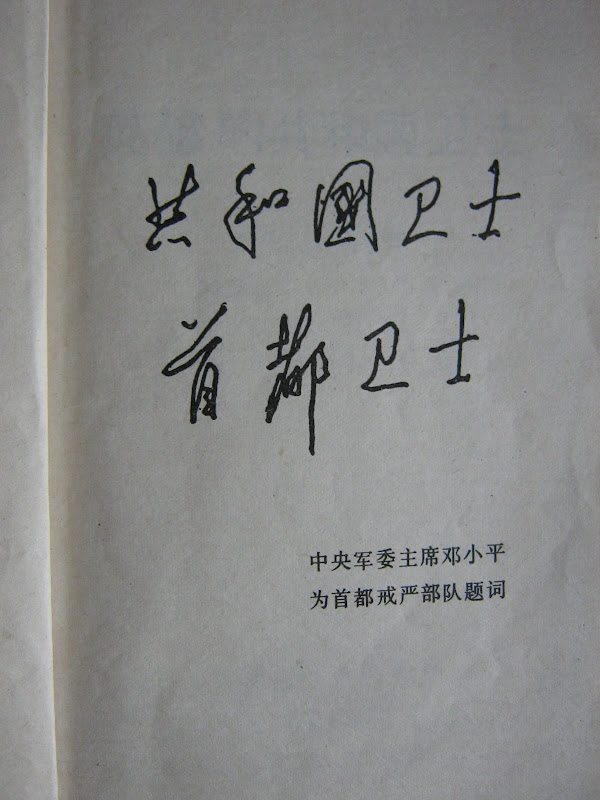 共和國卫士
首都卫士
中央军委主席邓小平
为首都戒严部队题词